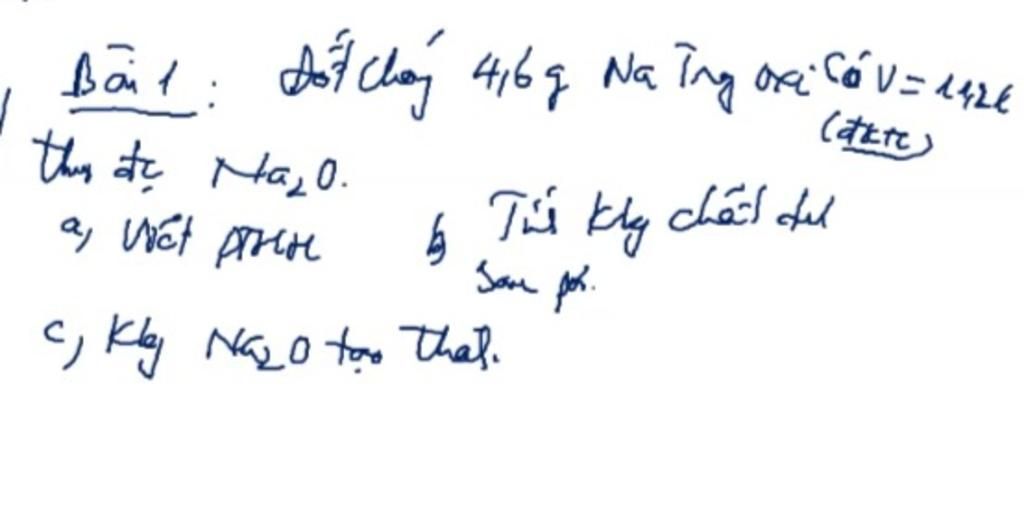 Bài 1: Đốt cháy 4,6g Na trg oxi có V = 11,2l
(đktc)
thu đc Na₂O.
a, Viết PTHH b, Tính klg chất dư
sau pứ.
c, Klg Na₂O tạo thành.